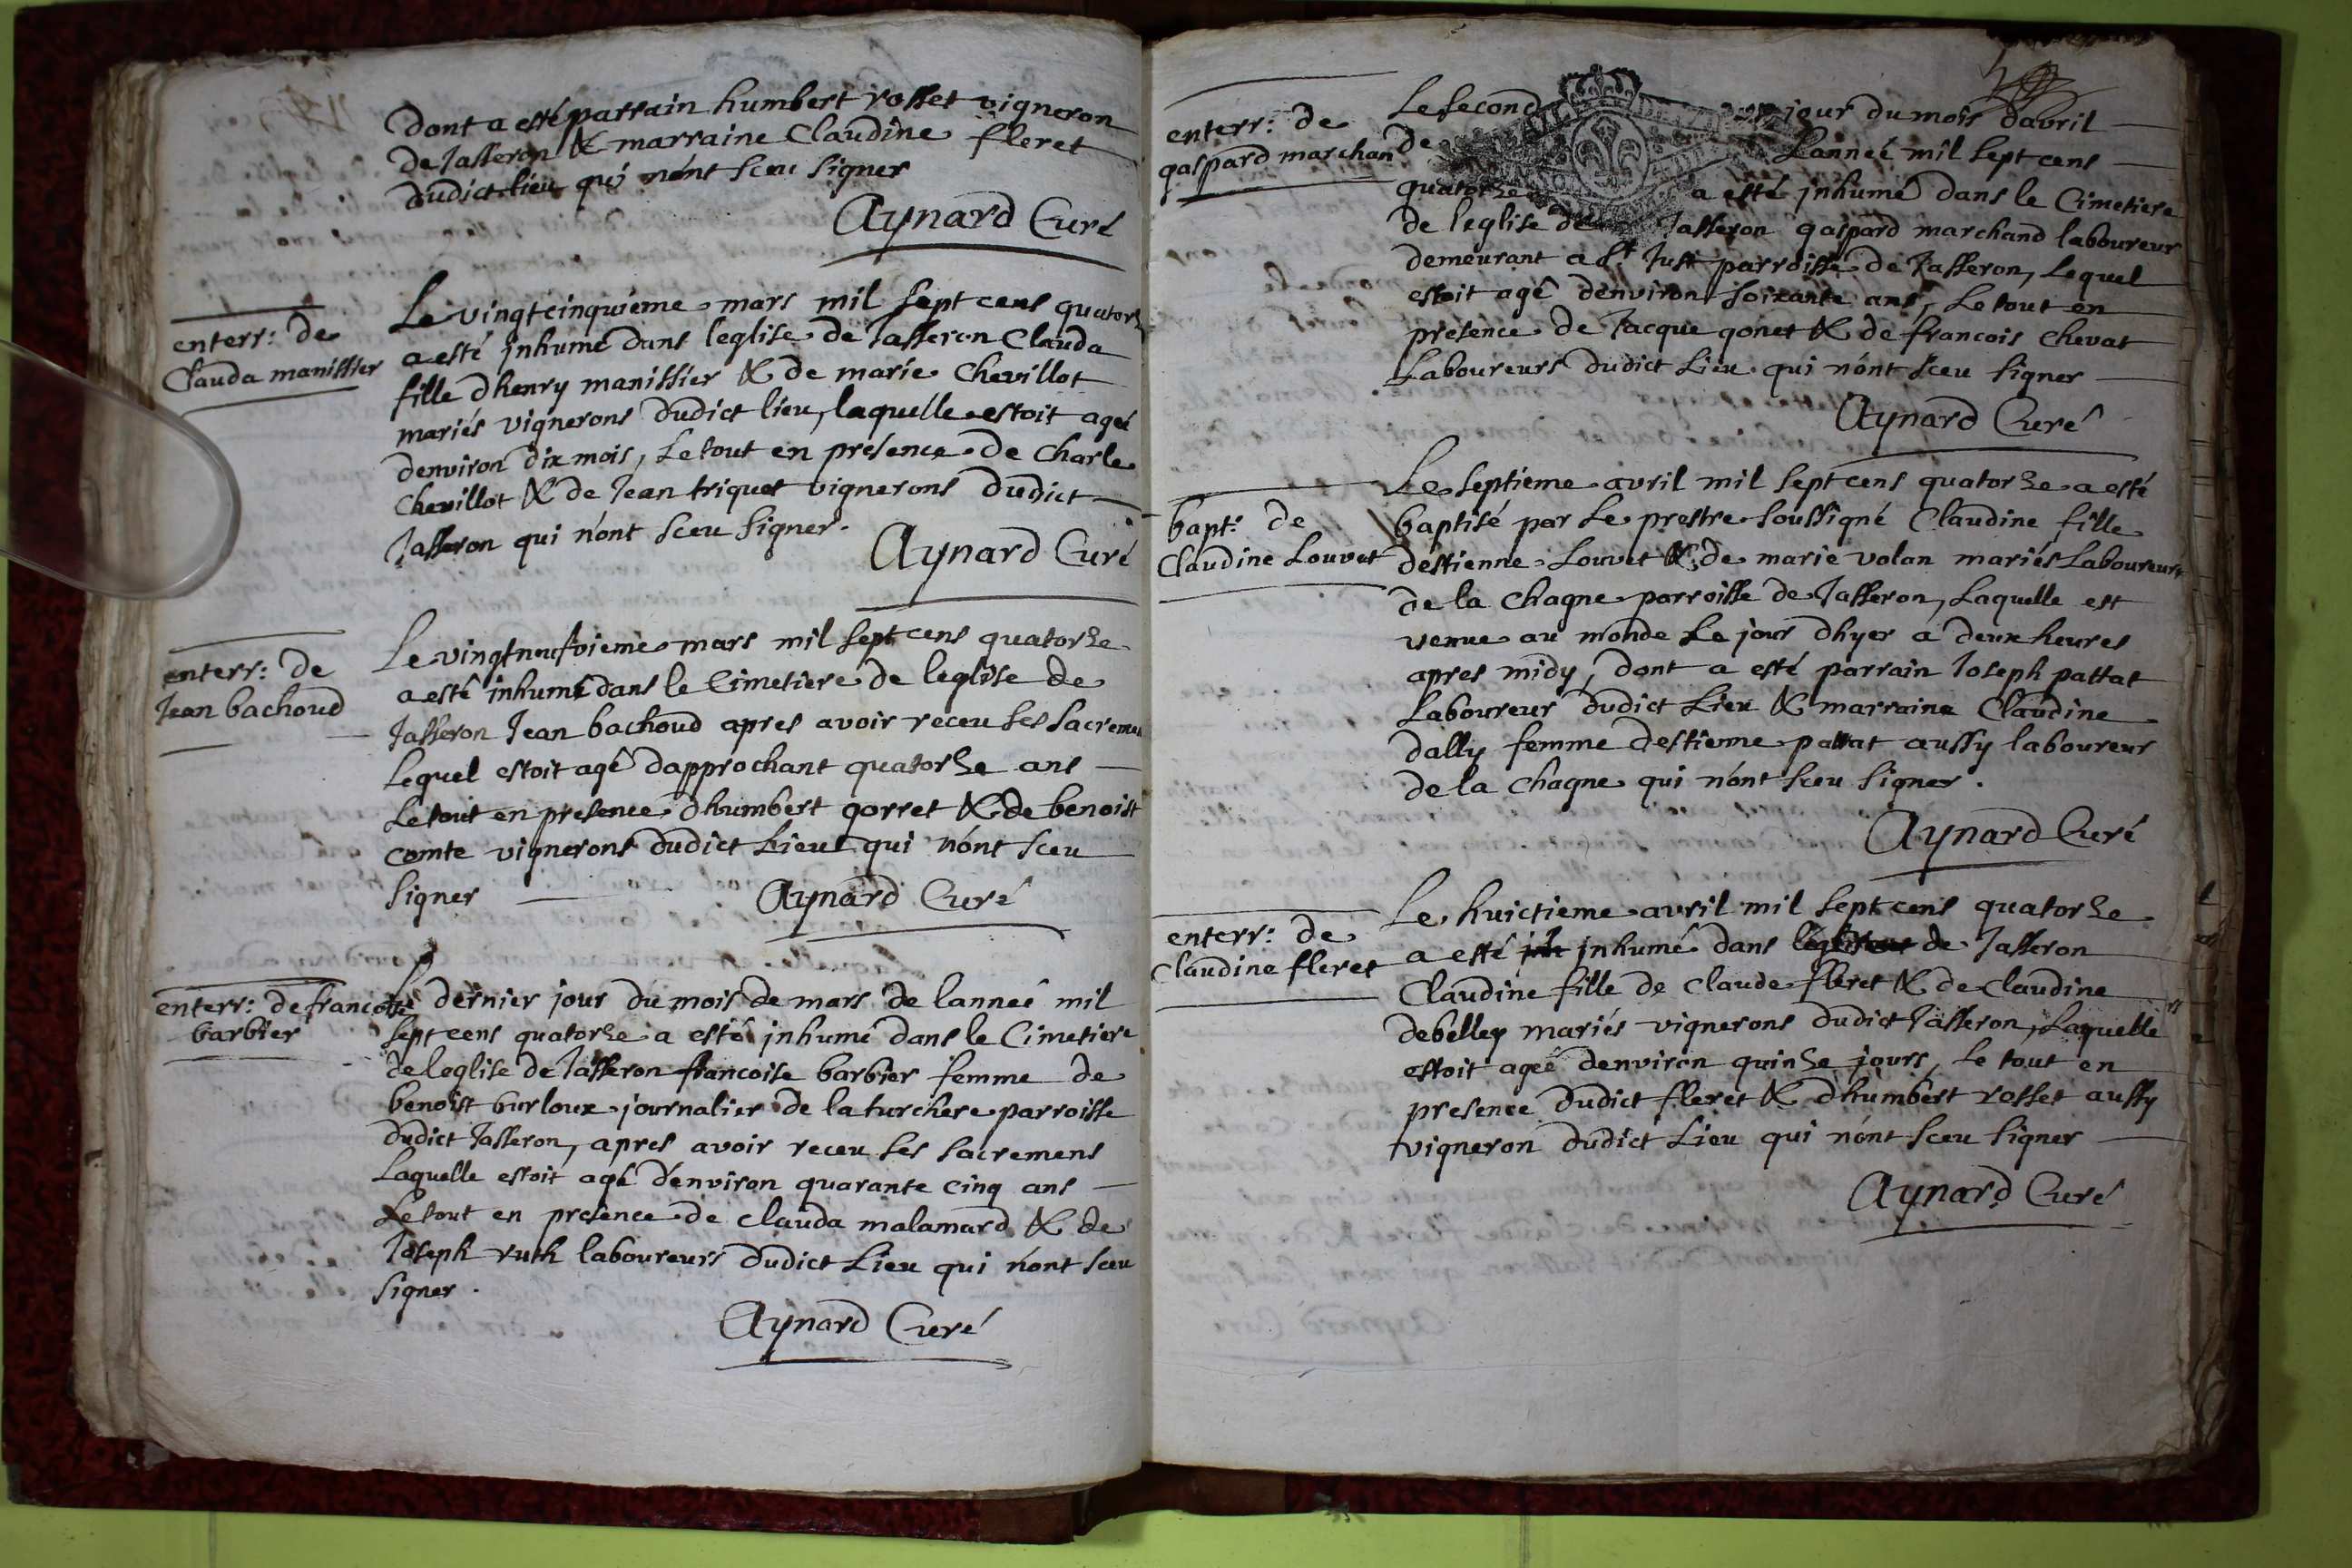 dont a esté parrain humbert rosset vigneron
de Jasseron & marraine Claudine fleret
dudict lieu qui nónt sceu signer
Aynard Curé
enterr: de
Clauda manissier
Le vingtcinquieme mars mil sept cens quatorz
a esté inhumé dans leglise de Jasseron Clauda
fille dhenry manissier & de marie Chevillot
mariés vignerons dudict lieu, laquelle estoit ageé
denviron dix mois, Le tout en presence de Charle
Chevillot & de Jean triquet vignerons dudict
Jasseron qui nónt sceu signer.
Aynard Curé
enterr: de
Jean bachoud
Le vingtneufvieme mars mil sept cens quatorze
a esté inhumé dans le Cimetiere de leglise de
Jasseron Jean bachoud apres avoir receu ses sacremen
Lequel estoit agé dapprochant quatorze ans
Le tout en presence dhumbert gorret & de benoist
comte vignerons dudict Lieu qui nónt sceu
signer
Aynard Curé
enterr: de francoise
barbier
Le dernier jour du mois de mars de lanneé mil
sept cens quatorze a esté inhumé dans le Cimetiere
de leglise de Jasseron francoise barbier femme de
benoist burloux journalier de la turchere parroisse
dudict Jasseron, apres avoir receu ses sacremens
Laquelle estoit agé denviron quarante cinq ans
Le tout en presence de Clauda malamard & de
Joseph ruth laboureurs dudict Lieu qui nónt sceu
signer.
Aynard Curé
enterr: de
gaspard marchan
Le second jour du mois davril
de Lanneé mil sept cens
quatorze a esté inhumé dans le Cimetiere
de leglise de Jasseron gaspard marchand laboureur
demeurant a St Just parroisse de Jasseron, Lequel
estoit agé denviron soixante ans, Le tout en
presence de Jacque gonet & de francois Chevat
Laboureurs dudict Lieu qui nónt sceu signer
Aynard Curé
bapt: de
Claudine Louvet
Le septieme avril mil sept cens quatorze a esté
baptisé par Le prestre soussigné Claudine fille
destienne Louvet & de marie volan mariés Laboureurs
de la Chagne parroisse de Jasseron, Laquelle est
venue au monde Le jour dhyer á deux heures
apres midy, dont a esté parrain Joseph pattat
Laboureur dudict Lieu & marraine Claudine
dally femme destienne pattat aussy laboureur
de la Chagne qui nónt sceu signer.
Aynard Curé
enterr: de
Claudine fleret
Le huictieme avril mil sept cens quatorze
a esté inhumé dans leglise de Jasseron
Claudine fille de Claude fleret & de Claudine
debelley mariés vignerons dudict Jasseron, Laquelle
estoit ageé denviron quinze jours, Le tout en
presence dudict fleret & dhumbert rosset aussy
vigneron dudict Lieu qui nónt sceu signer
Aynard Curé